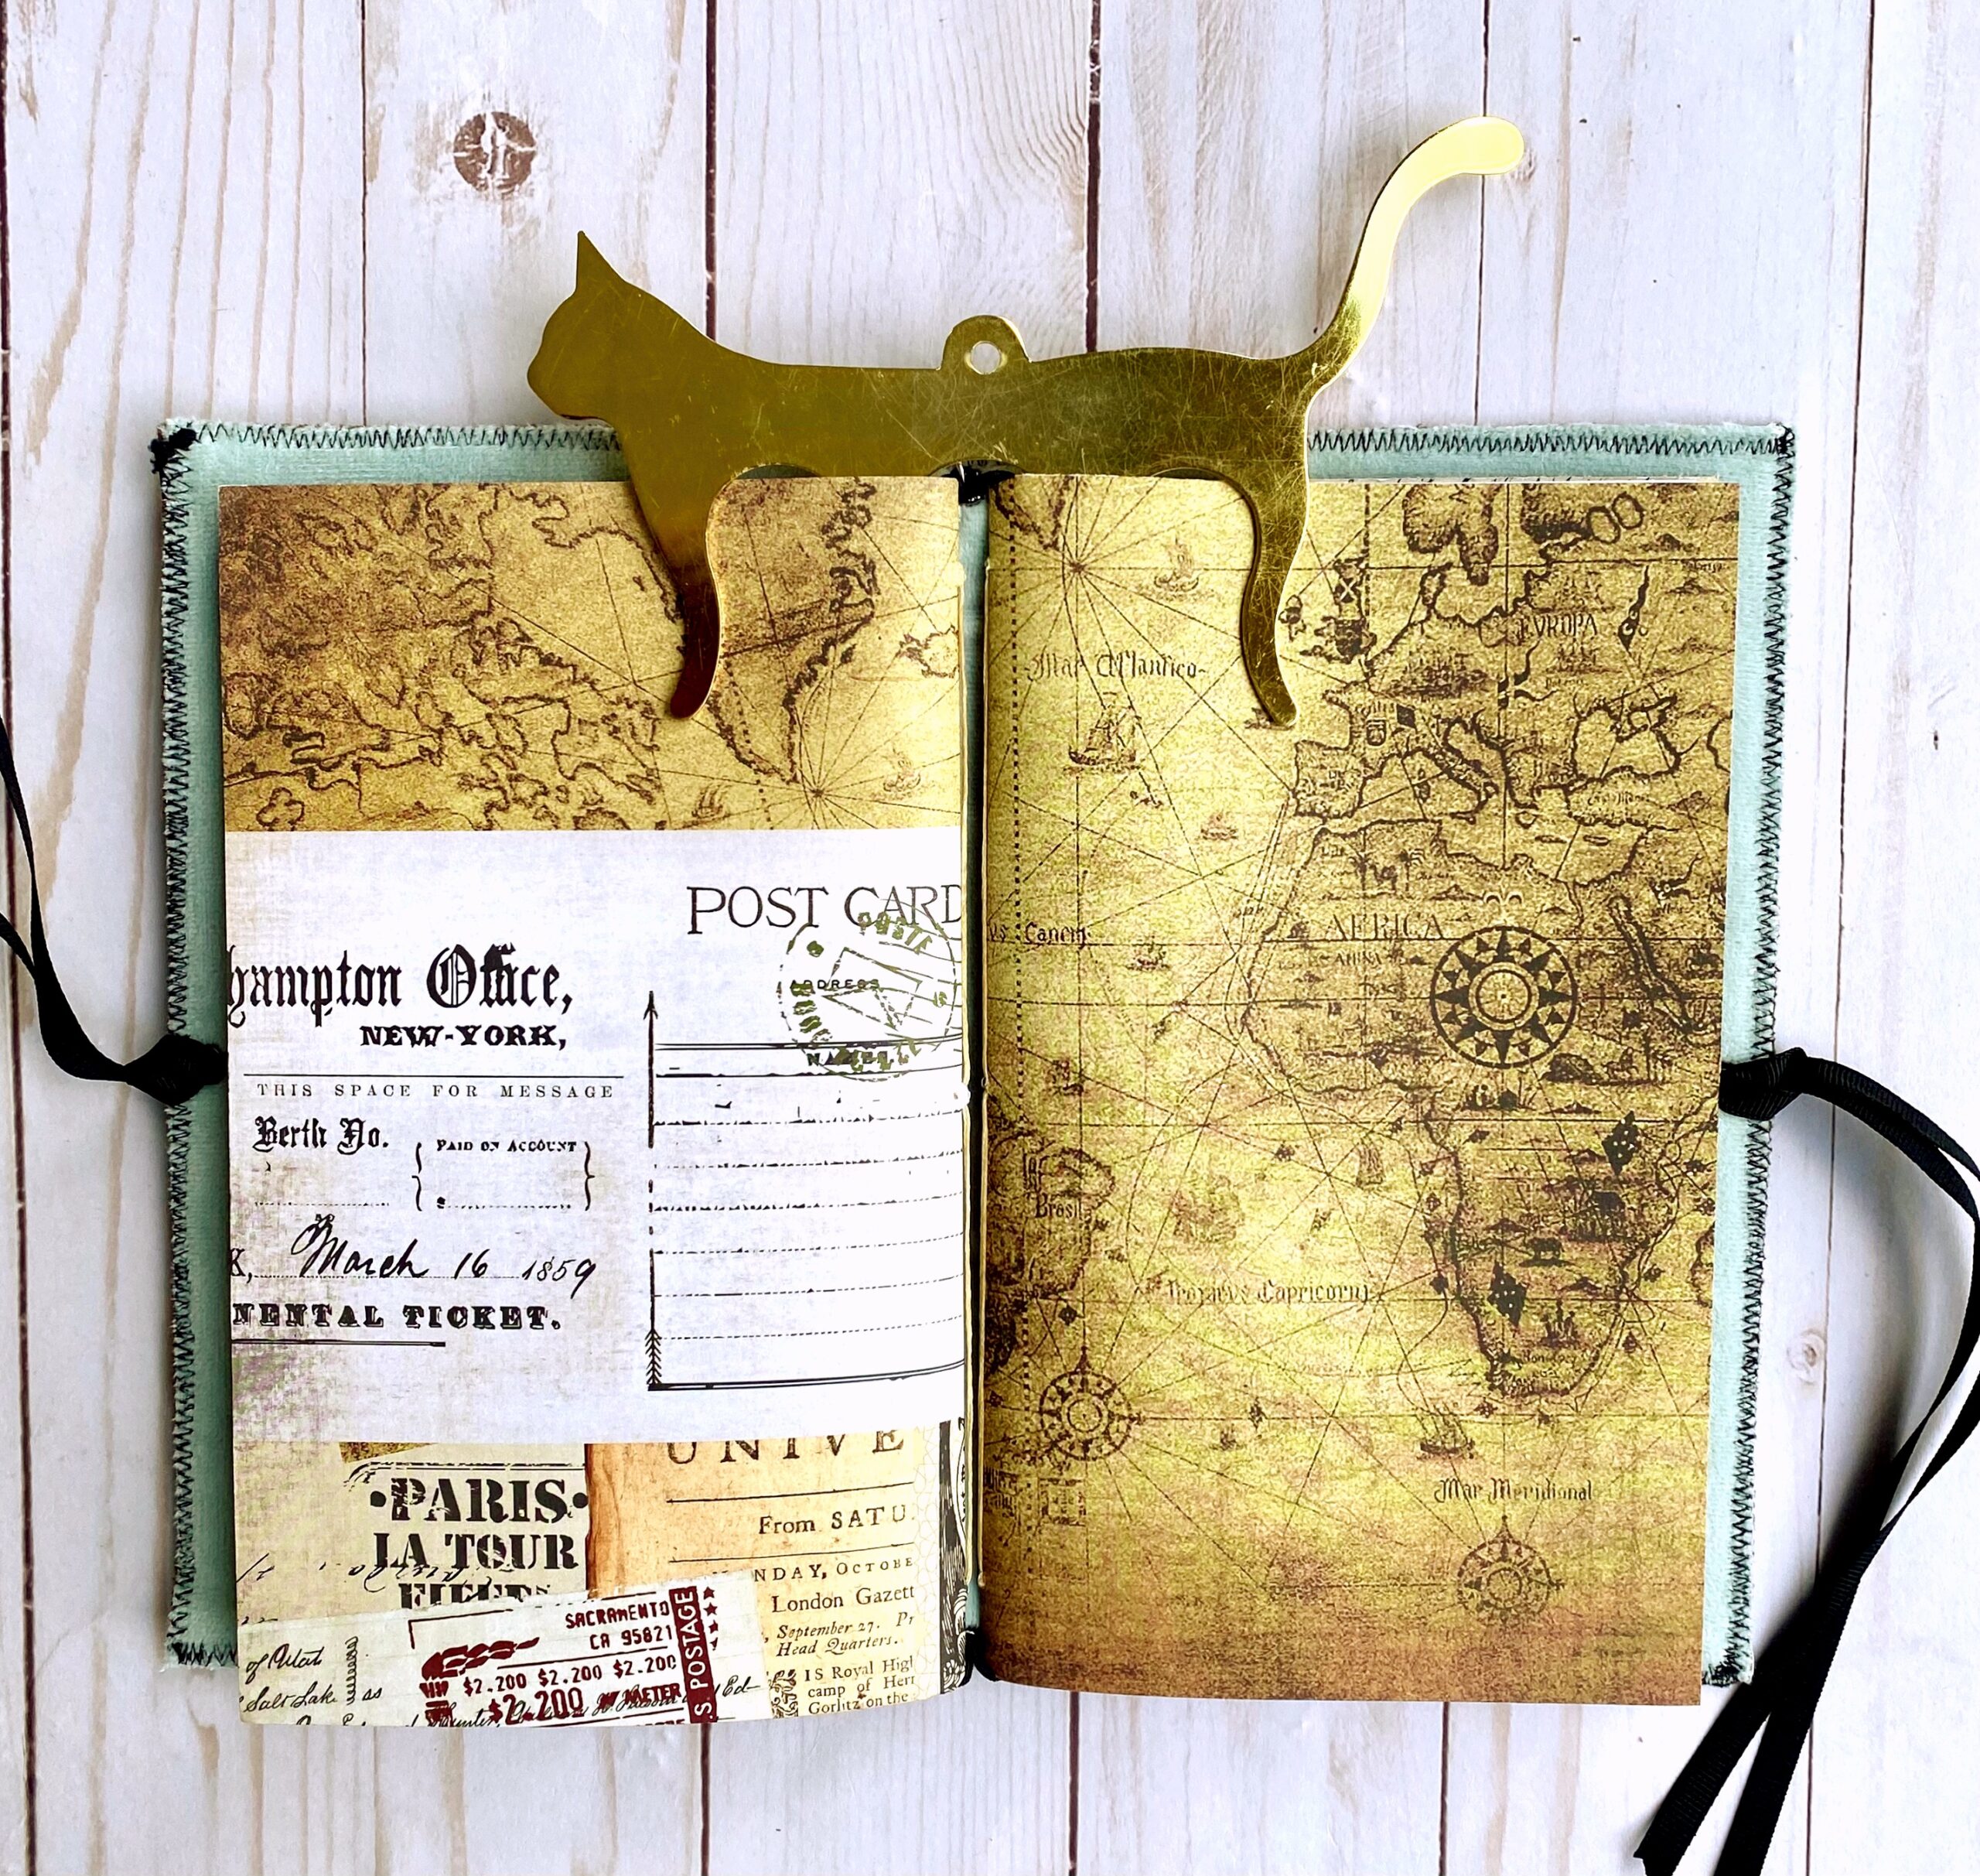 POST CARD
hampton Office,
NEW-YORK,
THIS SPACE FOR MESSAGE
ADDRESS
Berth No.
PAID ON ACCOUNT
March 16 1859
NENTAL TICKET.
PARIS
LA TOUR
EIFFEL
UNIVE
From SATU
NDAY, OCTOBE
London Gazett
, September 27. Pr
Head Quarters.
IS Royal Highl
camp of Herr
Gorlitz on the
SACRAMENTO
CA 95821
$2.200 $2.200 $2.200
$2.200
METER
S. POSTAGE
of Utah
Salt Lake
EVROPA
Mar Atlantico
AFRICA
Cancri
Brasil
Capricorni
Mar Meridional